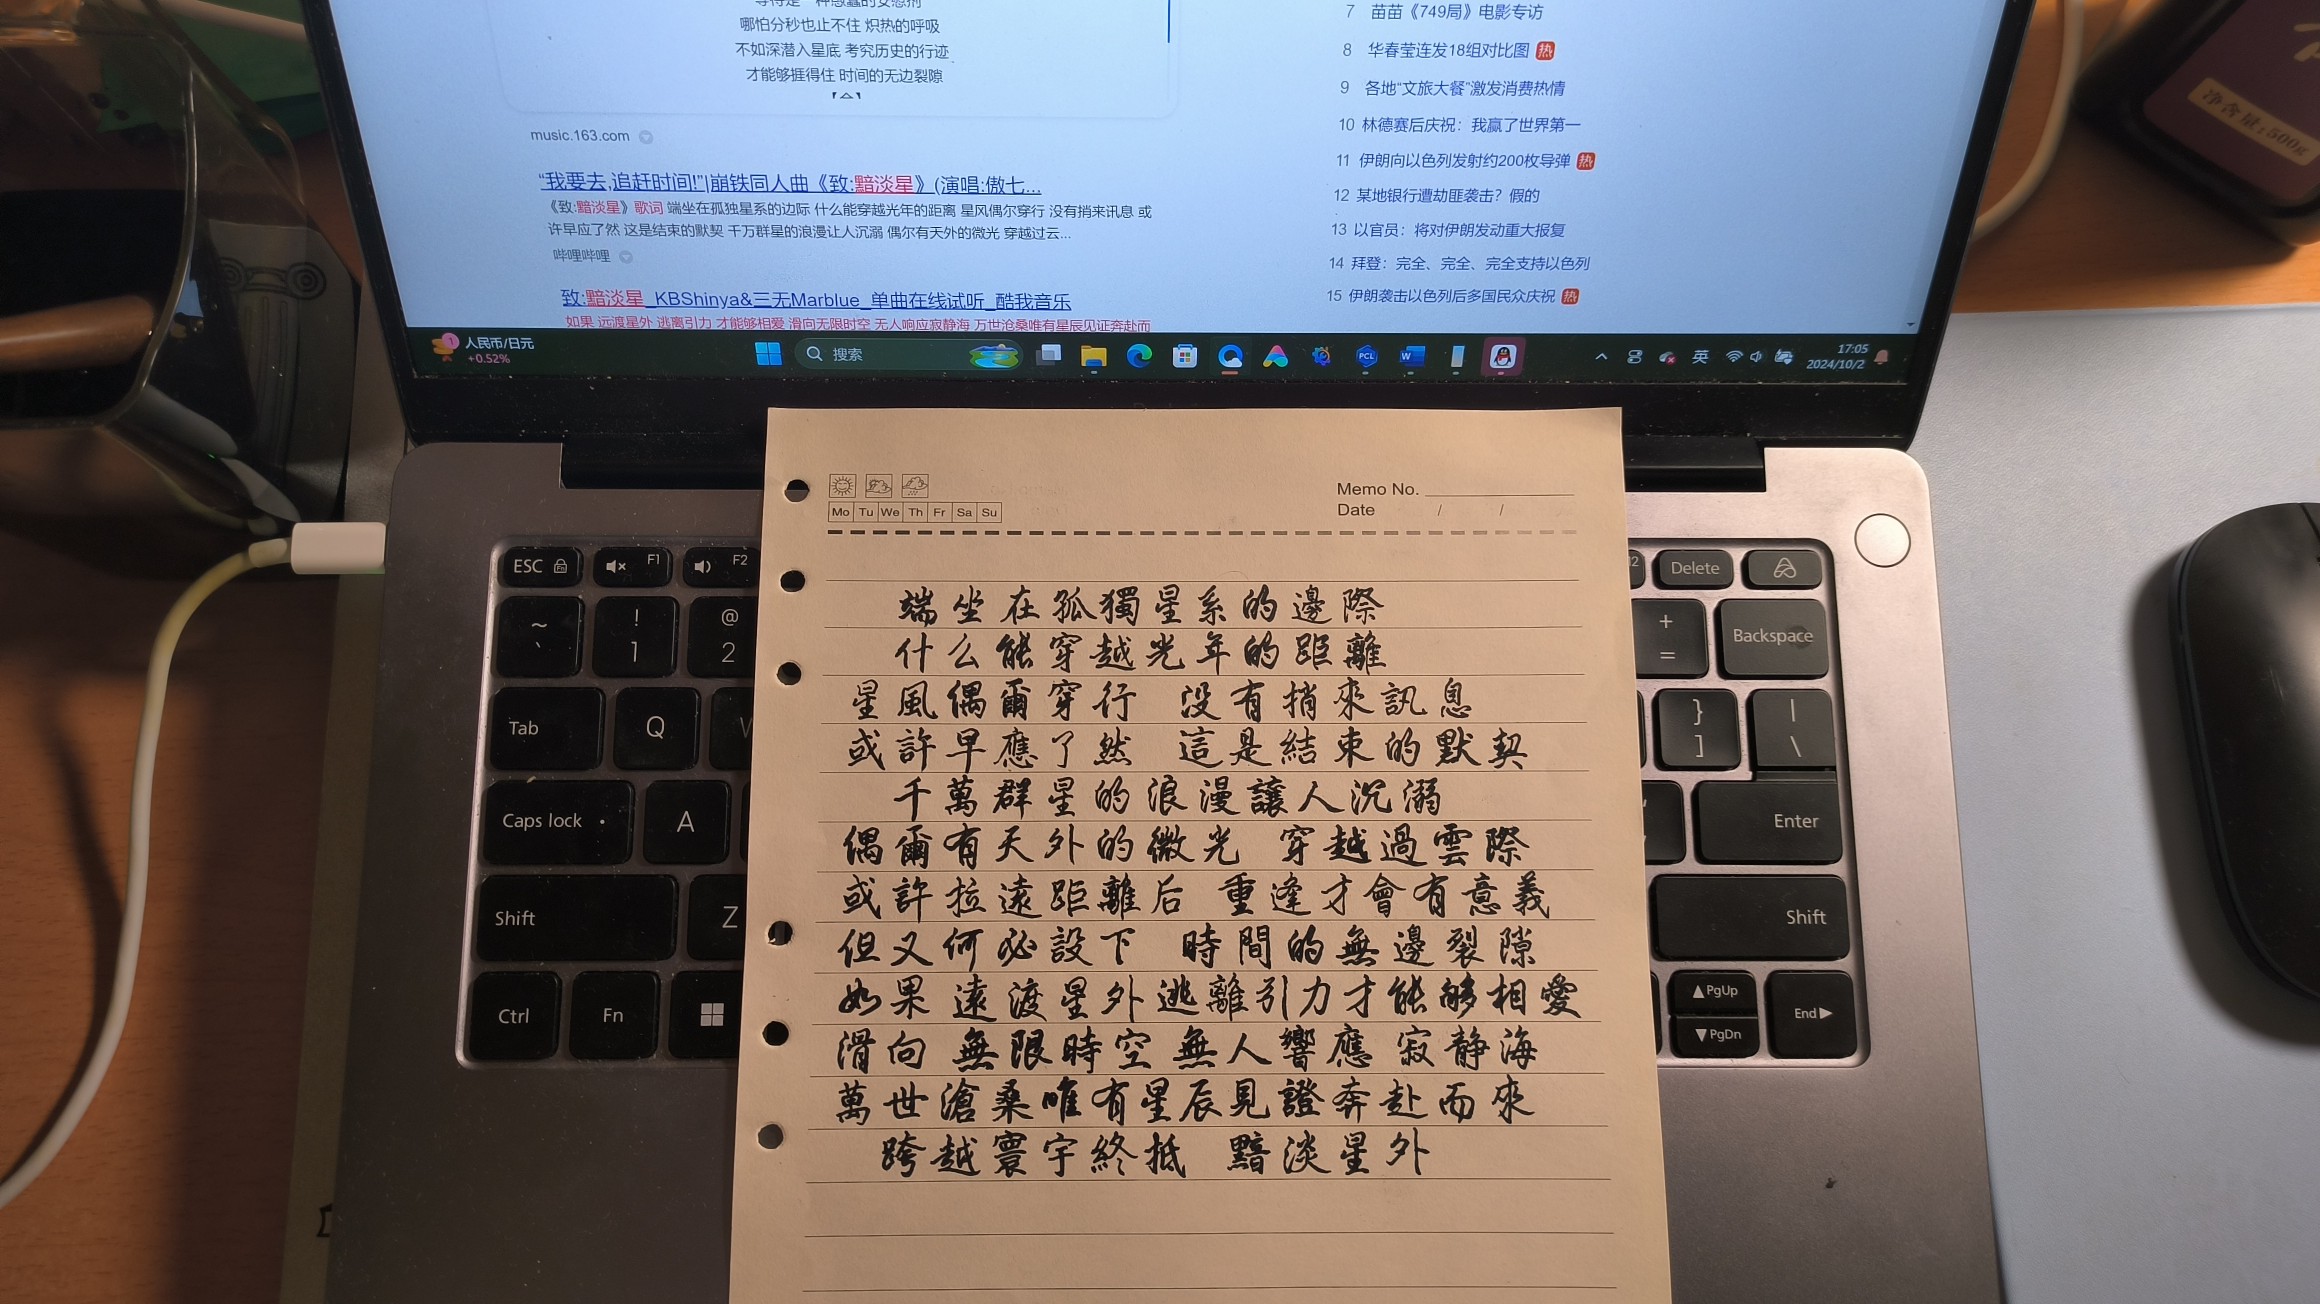 哪怕分秒也止不住 炽热的呼吸
不如深潜入星底 考究历史的行迹
才能够捱得住 时间的无边裂隙
music.163.com
“我要去,追赶时间!”|崩铁同人曲《致:黯淡星》(演唱:傲七...
《致:黯淡星》歌词 端坐在孤独星系的边际 什么能穿越光年的距离 星风偶尔穿行 没有捎来讯息 或
许早应了然 这是结束的默契 千万群星的浪漫让人沉溺 偶尔有天外的微光 穿越过云...
哔哩哔哩
致:黯淡星_KBShinya&三无Marblue_单曲在线试听_酷我音乐
如果 远渡星外 逃离引力 才能够相爱 滑向无限时空 无人响应寂静海 万世沧桑唯有星辰见证奔赴而
7 苗苗《749局》电影专访
8 华春莹连发18组对比图 热
9 各地“文旅大餐”激发消费热情
10 林德赛后庆祝：我赢了世界第一
11 伊朗向以色列发射约200枚导弹 热
12 某地银行遭劫匪袭击？假的
13 以官员：将对伊朗发动重大报复
14 拜登：完全、完全、完全支持以色列
15 伊朗袭击以色列后多国民众庆祝 热
净含量:500g
1
人民币/日元
+0.52%
搜索
PCL
W
英
17:05
2024/10/2
Mo Tu We Th Fr Sa Su
Memo No.
Date / /
端坐在孤獨星系的邊際
什么能穿越光年的距離
星風偶爾穿行 没有捎來訊息
或許早應了然 這是結束的默契
千萬群星的浪漫讓人沉溺
偶爾有天外的微光 穿越過雲際
或許拉遠距離后 重逢才會有意義
但又何必設下 時間的無邊裂隙
如果 遠渡星外逃離引力才能够相愛
滑向 無限時空 無人響應 寂静海
萬世滄桑唯有星辰見證奔赴而來
跨越寰宇終抵 黯淡星外
ESC Fn F1 F2
~ ` ! 1 @ 2
Tab Q W
Caps lock A
Shift Z
Ctrl Fn
Delete
+ = Backspace
} ] | \
Enter
Shift
PgUp
PgDn
End